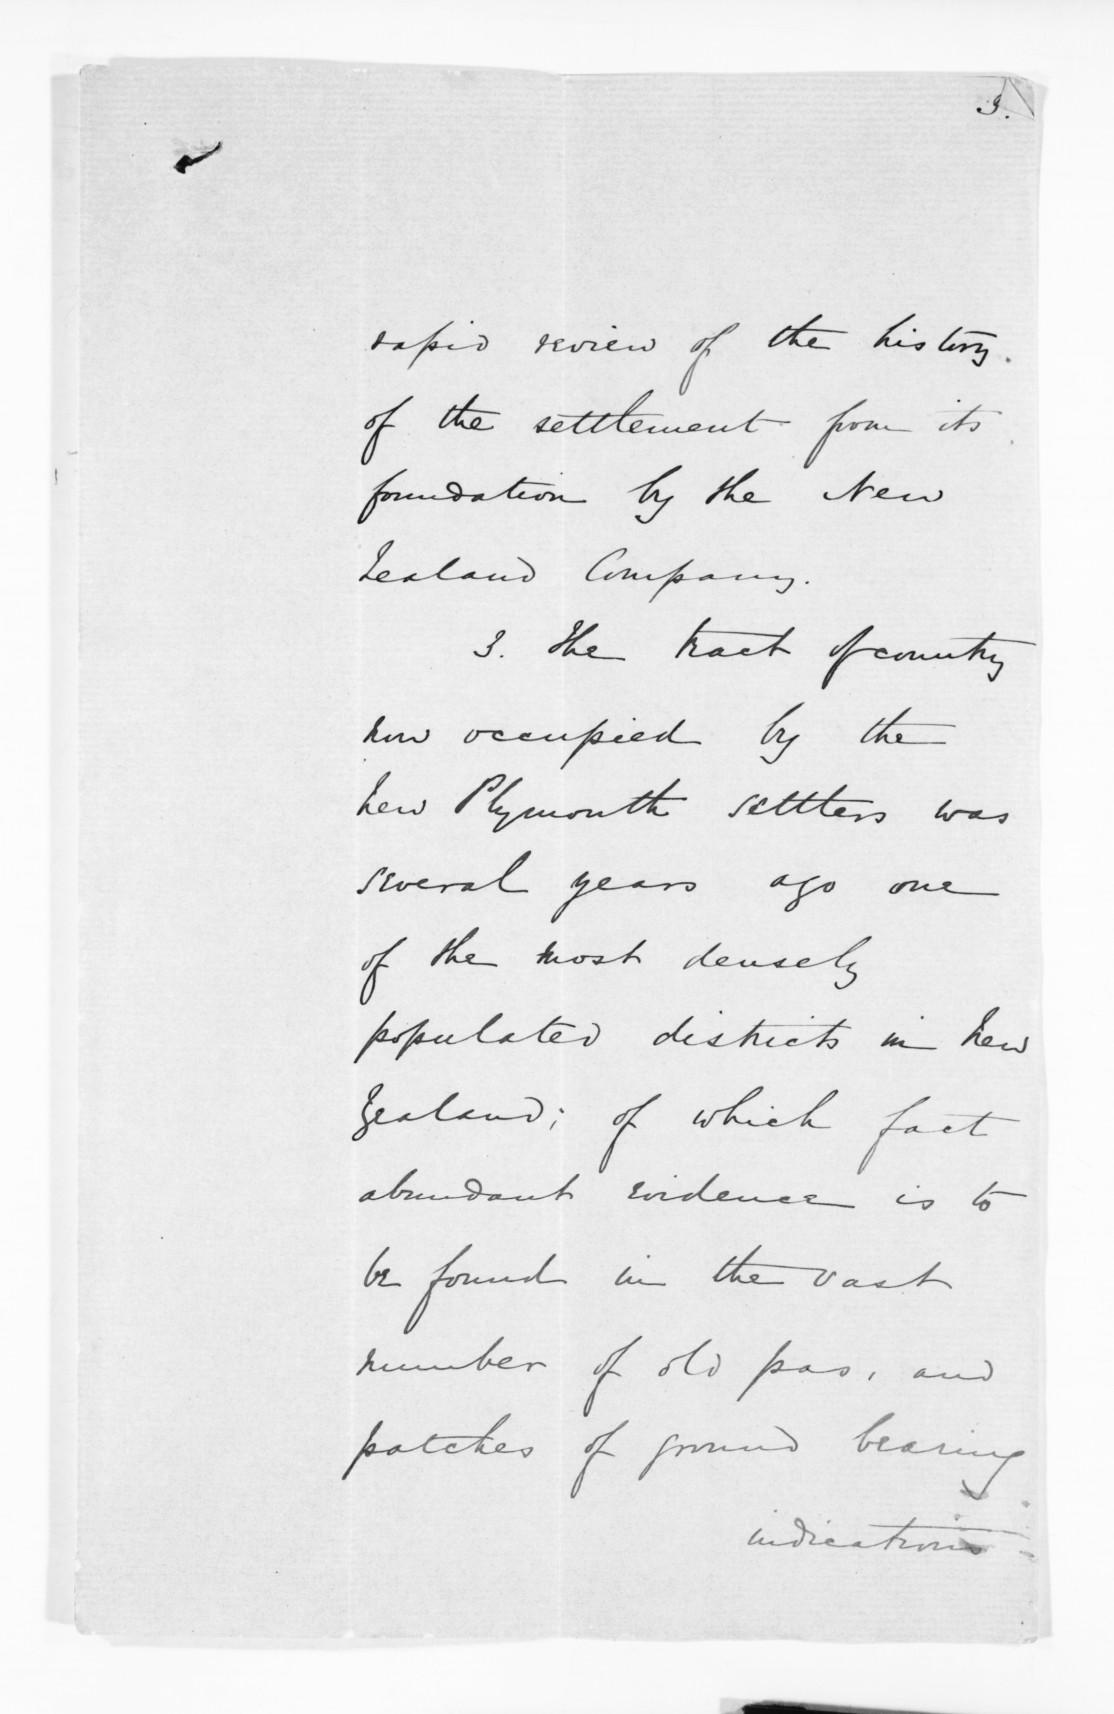 3.
rapid review of the history
of the settlement from its
foundation by the New
Zealand Company.
3. The tract of country
now occupied by the
New Plymouth settlers was
several years ago one
of the most densely
populated districts in New
Zealand; of which fact
abundant evidence is to
be found in the vast
number of old pas, and
patches of ground bearing
indications